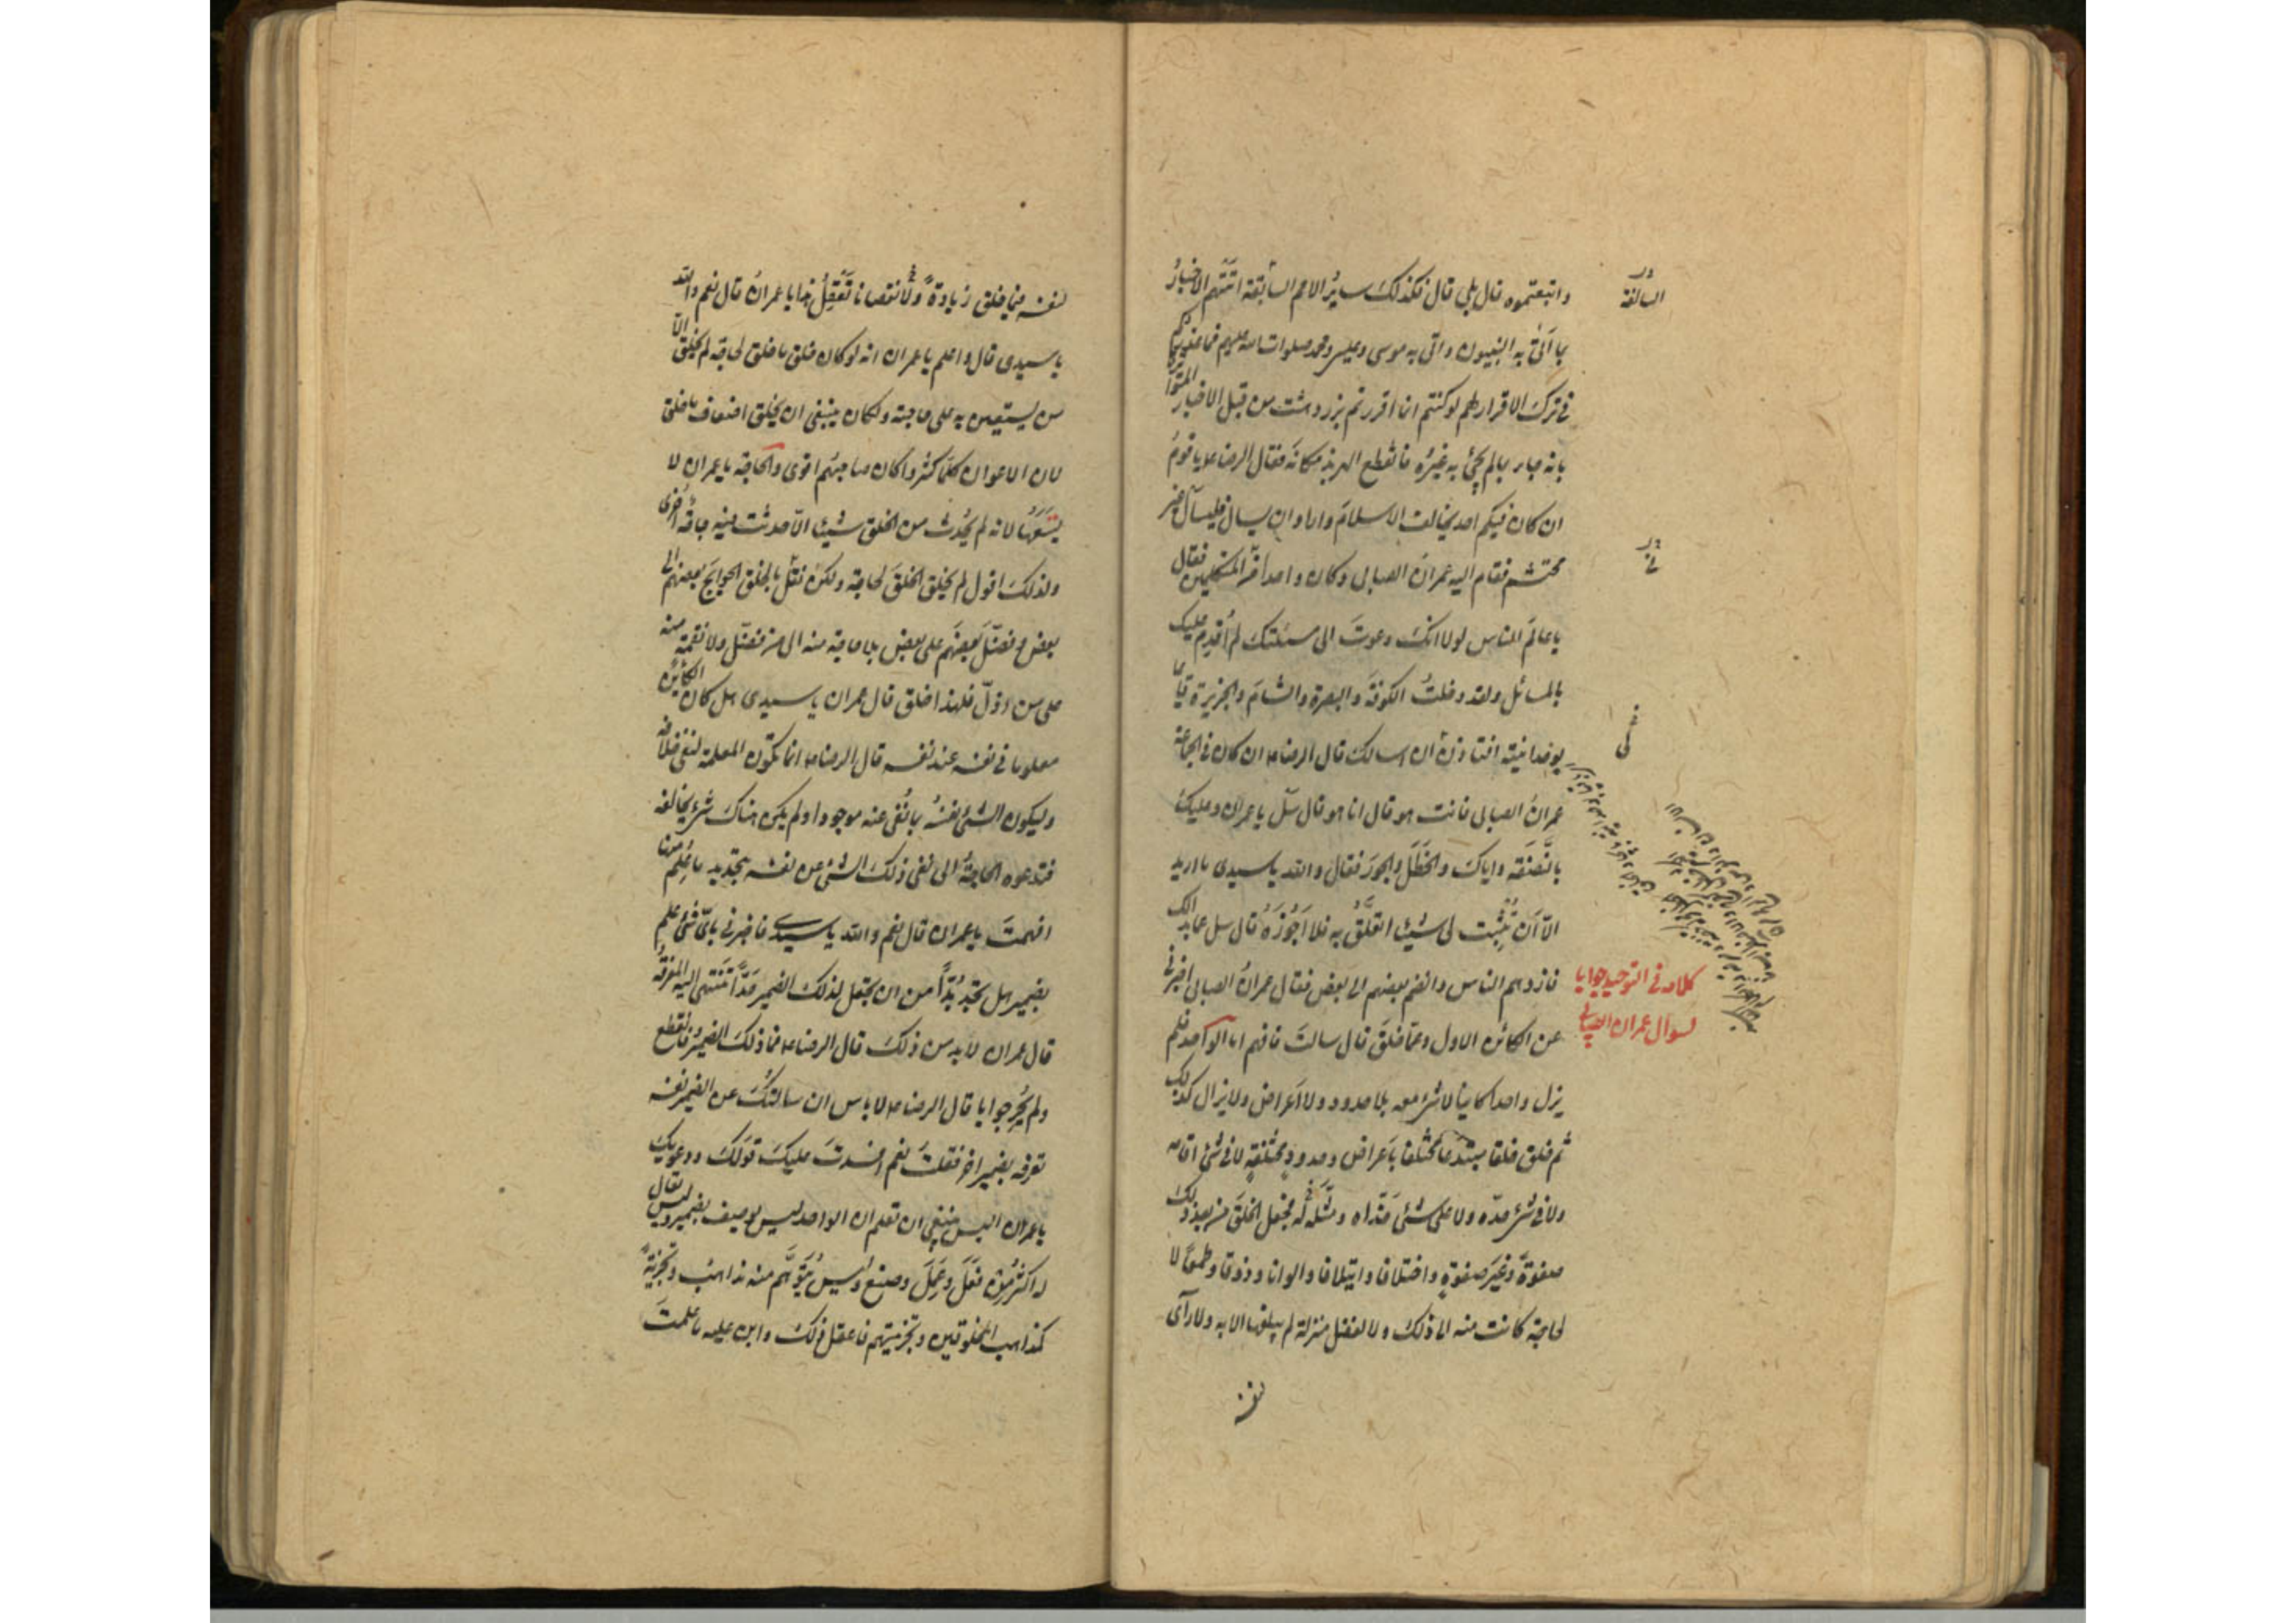 واتبعتموه قال بلى قال فكذلك سایر الامم السابقة اتتهم الاخبار
السالفة
بما اتى به النبيون واتى به موسى وعيسى ومحمد صلوات الله عليهم فما عذركم
في ترك الاقرار لهم لو كنتم انما اقررتم بزردهشت من قبل الاخبار المتواترة
بانه جاء بما لم يجئ به غيره فانقطع الهربذ مكانه فقال الرضا ع يا قوم
ان كان فيكم احد يخالف الاسلام واراد ان يسال فليسال غير
محتشم فقام اليه عمران الصابى وكان واحدا من المتكلمين فقال
يا عالم الناس لولا انك دعوت الى مسئلتك لم اقدم عليك
بالمسائل ولقد دخلت الكوفة والبصرة والشام والجزيرة
بوحدانيته افتاذن ان اسالك قال الرضا ع ان كان في الجماعة
عمران الصابى فانت هو قال انا هو قال سل يا عمران وعليك
بالنصفة واياك والخطل والجور فقال والله يا سيدى ما اريد
الا ان تثبت لى شيئا اتعلق به فلا اجوزه قال سل عما بدا لك
فازدحم الناس وانضم بعضهم الى بعض فقال عمران الصابى اخبرنى
كلامه في التوحيد جوابا
لسؤال عمران الصابى
عن الكائن الاول وعما خلق قال سالت فافهم اما الواحد فلم
يزل واحدا كاينا لا شئ معه بلا حدود ولا اعراض ولا يزال كذلك
ثم خلق خلقا مبتدعا مختلفا باعراض وحدود مختلفة لا في شئ اقامه
ولا في شئ حده ولا على شئ حذاه ومثله له فجعل الخلق من بعد ذلك
صفوة وغير صفوة واختلافا وايتلافا والوانا وذوقا وطعما لا
لحاجة كانت منه الى ذلك ولا لفضل منزلة لم يبلغها الا به ولا راى
لنفسه
لنفسه فيما خلق زيادة ولا نقصانا تعقل هذا يا عمران قال نعم والله
يا سيدى قال واعلم يا عمران انه لو كان خلق ما خلق لحاجة لم يخلق الا
من يستعين به على حاجته ولكان ينبغى ان يخلق اضعاف ما خلق
لان الاعوان كلما كثروا كان صاحبهم اقوى والحاجة يا عمران لا
يسعها لانه لم يحدث من الخلق شيئا الا حدثت فيه حاجة اخرى
ولذلك اقول لم يخلق الخلق لحاجة ولكن نقل بالخلق الحوايج بعضهم الى
بعض وفضل بعضهم على بعض بلا حاجة منه الى من فضل ولا نقمة منه
على من اذل فلهذا خلق قال عمران يا سيدى هل كان الكائن
معلوما في نفسه عند نفسه قال الرضا ع انما تكون المعلمة لنفى خلافه
وليكون الشئ نفسه بما نفى عنه موجودا ولم يكن هناك شئ يخالفه
فتدعوه الحاجة الى نفى ذلك الشئ عن نفسه بتحديد ما علم منها
افهمت يا عمران قال نعم والله يا سيدى فاخبرنى باى شئ علم
بضمير هل تجد بدا من ان يجعل لذلك الضمير حدا تنتهى اليه المعرفة
قال عمران لا بد من ذلك قال الرضا ع فما ذلك الضمير فانقطع
ولم يحر جوابا قال الرضا ع لا باس ان سالتك عن الضمير نفسه
تعرفه بضمير اخر فقلت نعم افسدت عليك قولك ودعويك
يا عمران اليس ينبغى ان تعلم ان الواحد ليس يوصف بضمير وليس يقال
له اكثر من فعل وعمل وصنع وليس يتوهم منه مذاهب وتجزية
كمذاهب المخلوقين وتجزيتهم فاعقل ذلك وابن عليه ما علمت